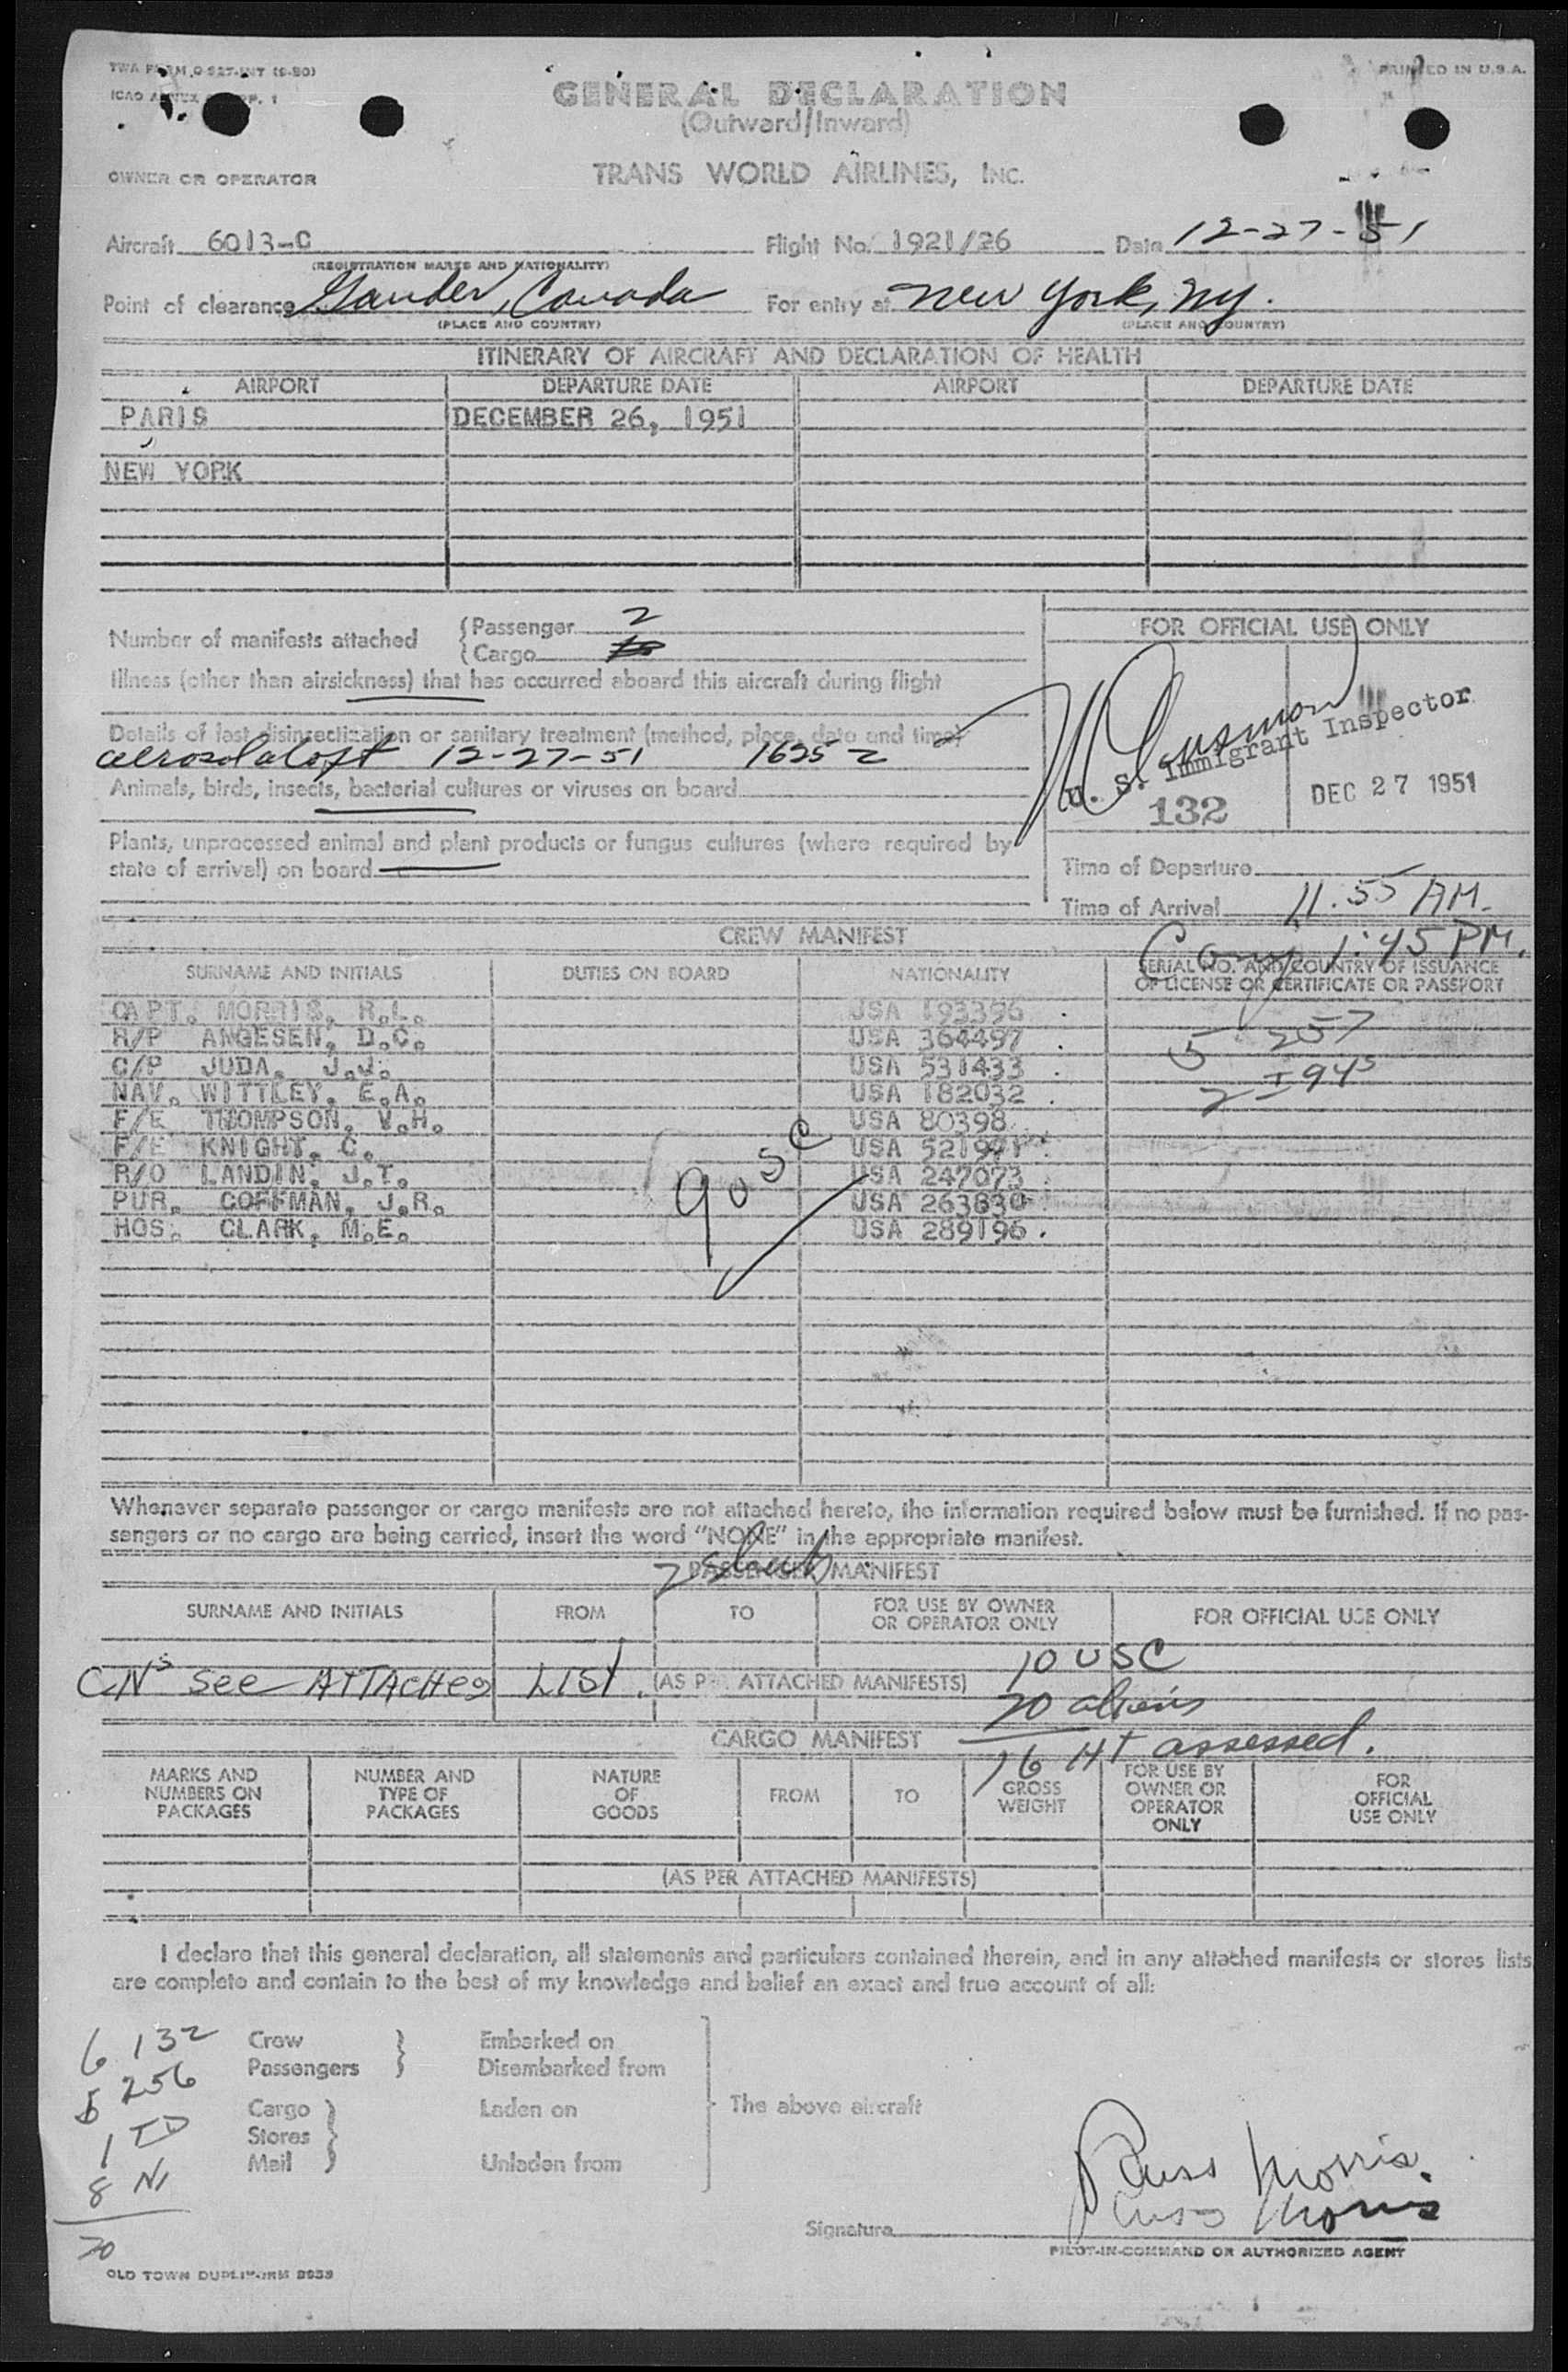 TWA FORM O-527-INT (9-50)
PRINTED IN U.S.A.
ICAO ANNEX APP. 1
GENERAL DECLARATION
(Outward/Inward)
OWNER OR OPERATOR
TRANS WORLD AIRLINES, INC.
Aircraft 6013-C Flight No. 1921/26 Date 12-27-51
(REGISTRATION MARKS AND NATIONALITY)
Point of clearance Gander, Canada For entry at New York, NY.
(PLACE AND COUNTRY) (PLACE AND COUNTRY)
ITINERARY OF AIRCRAFT AND DECLARATION OF HEALTH
AIRPORT DEPARTURE DATE AIRPORT DEPARTURE DATE
PARIS DECEMBER 26, 1951
NEW YORK
Number of manifests attached {Passenger 2
{Cargo
FOR OFFICIAL USE ONLY
Illness (other than airsickness) that has occurred aboard this aircraft during flight
Details of last disinsectization or sanitary treatment (method, place, date and time)
aerosol aloft 12-27-51 1625 Z
U. S. Immigrant Inspector
132 DEC 27 1951
Animals, birds, insects, bacterial cultures or viruses on board
Plants, unprocessed animal and plant products or fungus cultures (where required by
state of arrival) on board
Time of Departure
Time of Arrival 11.55 AM.
1:45 PM.
CREW MANIFEST
SURNAME AND INITIALS DUTIES ON BOARD NATIONALITY SERIAL NO. AND COUNTRY OF ISSUANCE
OF LICENSE OR CERTIFICATE OR PASSPORT
CAPT. MORRIS, R.L. USA 193396
R/P ANGESEN, D.C. USA 364497 5 257
C/P JUDA, J.J. USA 531433
NAV. WITTLEY, E.A. USA 182032
F/E THOMPSON, V.H. USA 80398
F/E KNIGHT, C. USA 521971
R/O LANDIN, J.T. USA 247073
9 USC
PUR. COFFMAN, J.R. USA 263830
HOS. CLARK, M.E. USA 289196
Whenever separate passenger or cargo manifests are not attached hereto, the information required below must be furnished. If no pas-
sengers or no cargo are being carried, insert the word "NONE" in the appropriate manifest.
PASSENGER MANIFEST
SURNAME AND INITIALS FROM TO FOR USE BY OWNER
OR OPERATOR ONLY FOR OFFICIAL USE ONLY
10 USC
See ATTACHED LIST. (AS PER ATTACHED MANIFESTS)
20 aliens
CARGO MANIFEST
16 HT assessed.
MARKS AND
NUMBERS ON
PACKAGES
NUMBER AND
TYPE OF
PACKAGES
NATURE
OF
GOODS
FROM
TO
GROSS
WEIGHT
FOR USE BY
OWNER OR
OPERATOR
ONLY
FOR
OFFICIAL
USE ONLY
(AS PER ATTACHED MANIFESTS)
I declare that this general declaration, all statements and particulars contained therein, and in any attached manifests or stores lists
are complete and contain to the best of my knowledge and belief an exact and true account of all:
6 132 Crew } Embarked on
5 256 Passengers } Disembarked from
Cargo } Laden on The above aircraft
1 TD Stores
8 NI Mail } Unladen from
20
Russ Morris
Russ Morris
Signature
PILOT-IN-COMMAND OR AUTHORIZED AGENT
OLD TOWN DUPLI-FORM 8958